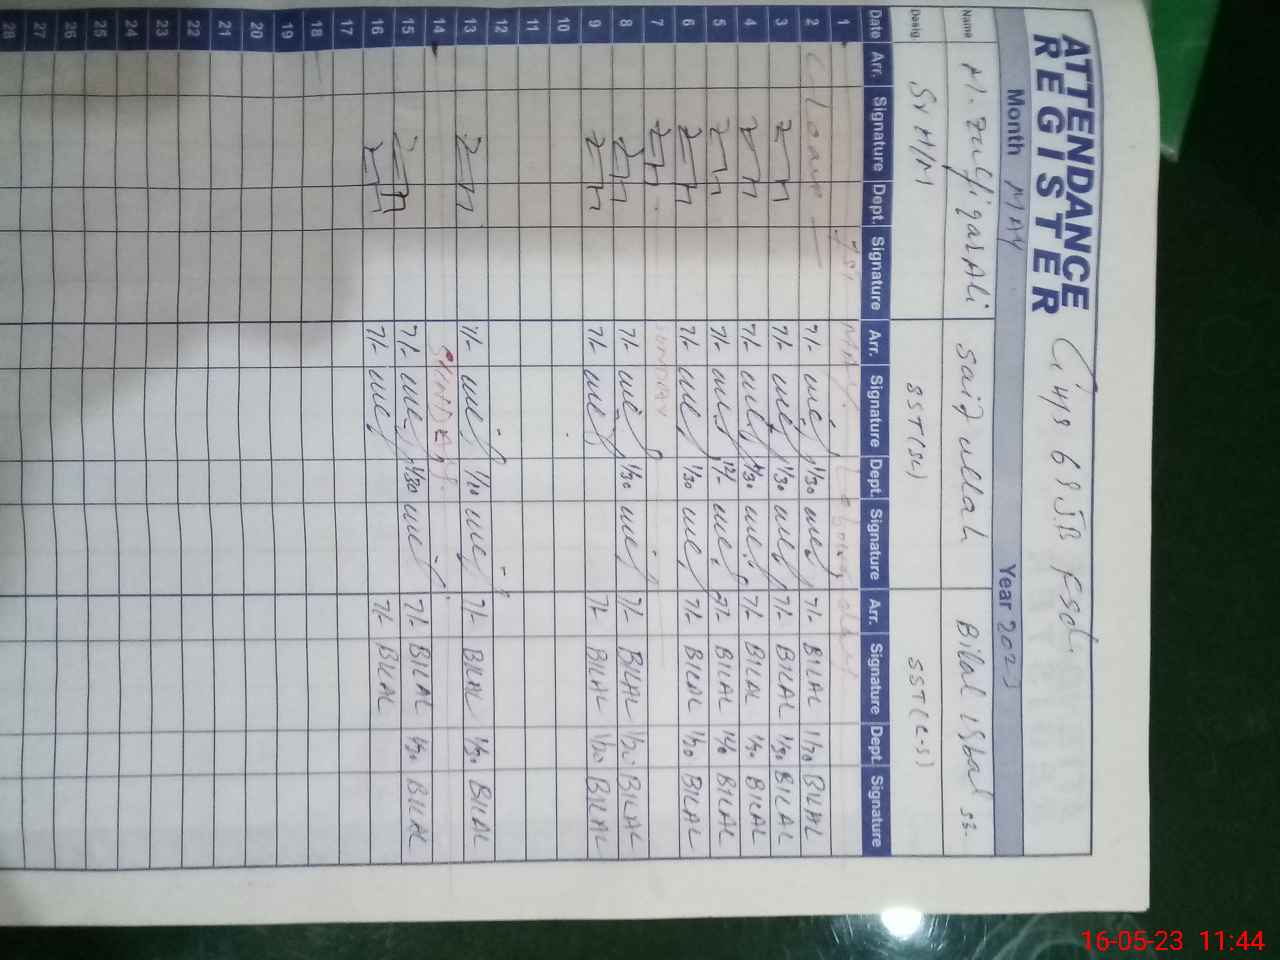 ATTENDANCE
REGISTER
GHS 69 JB Fsd.
Month MAY Year 2023
Name M. Zulfiqar Ali Saif ullah Bilal Iqbal
Desig. Sr H/M SST(Sc) SST(C-S)
Date Arr. Signature Dept. Signature Arr. Signature Dept. Signature Arr. Signature Dept. Signature
1 1st May. Labour day
2 Leave 7/- 1/30 7/- BILAL 1/30 BILAL
3 7/- 1/30 7/- BILAL 1/30 BILAL
4 7/- 1/30 7/- BILAL 1/30 BILAL
5 7/- 12/- 7/- BILAL BILAL
6 7/- 1/30 7/- BILAL 1/30 BILAL
7 SUNDAY
8 7/- 1/30 7/- BILAL 1/30 BILAL
9 7/- 7/- BILAL 1/30 BILAL
10
11
12
13 7/- 7/- BILAL 1/30 BILAL
14 SUNDAY.
15 7/- 1/30 7/- BILAL 1/30 BILAL
16 7/- 7/- BILAL
17
18
19
20
21
22
23
24
25
26
27
28
16-05-23 11:44